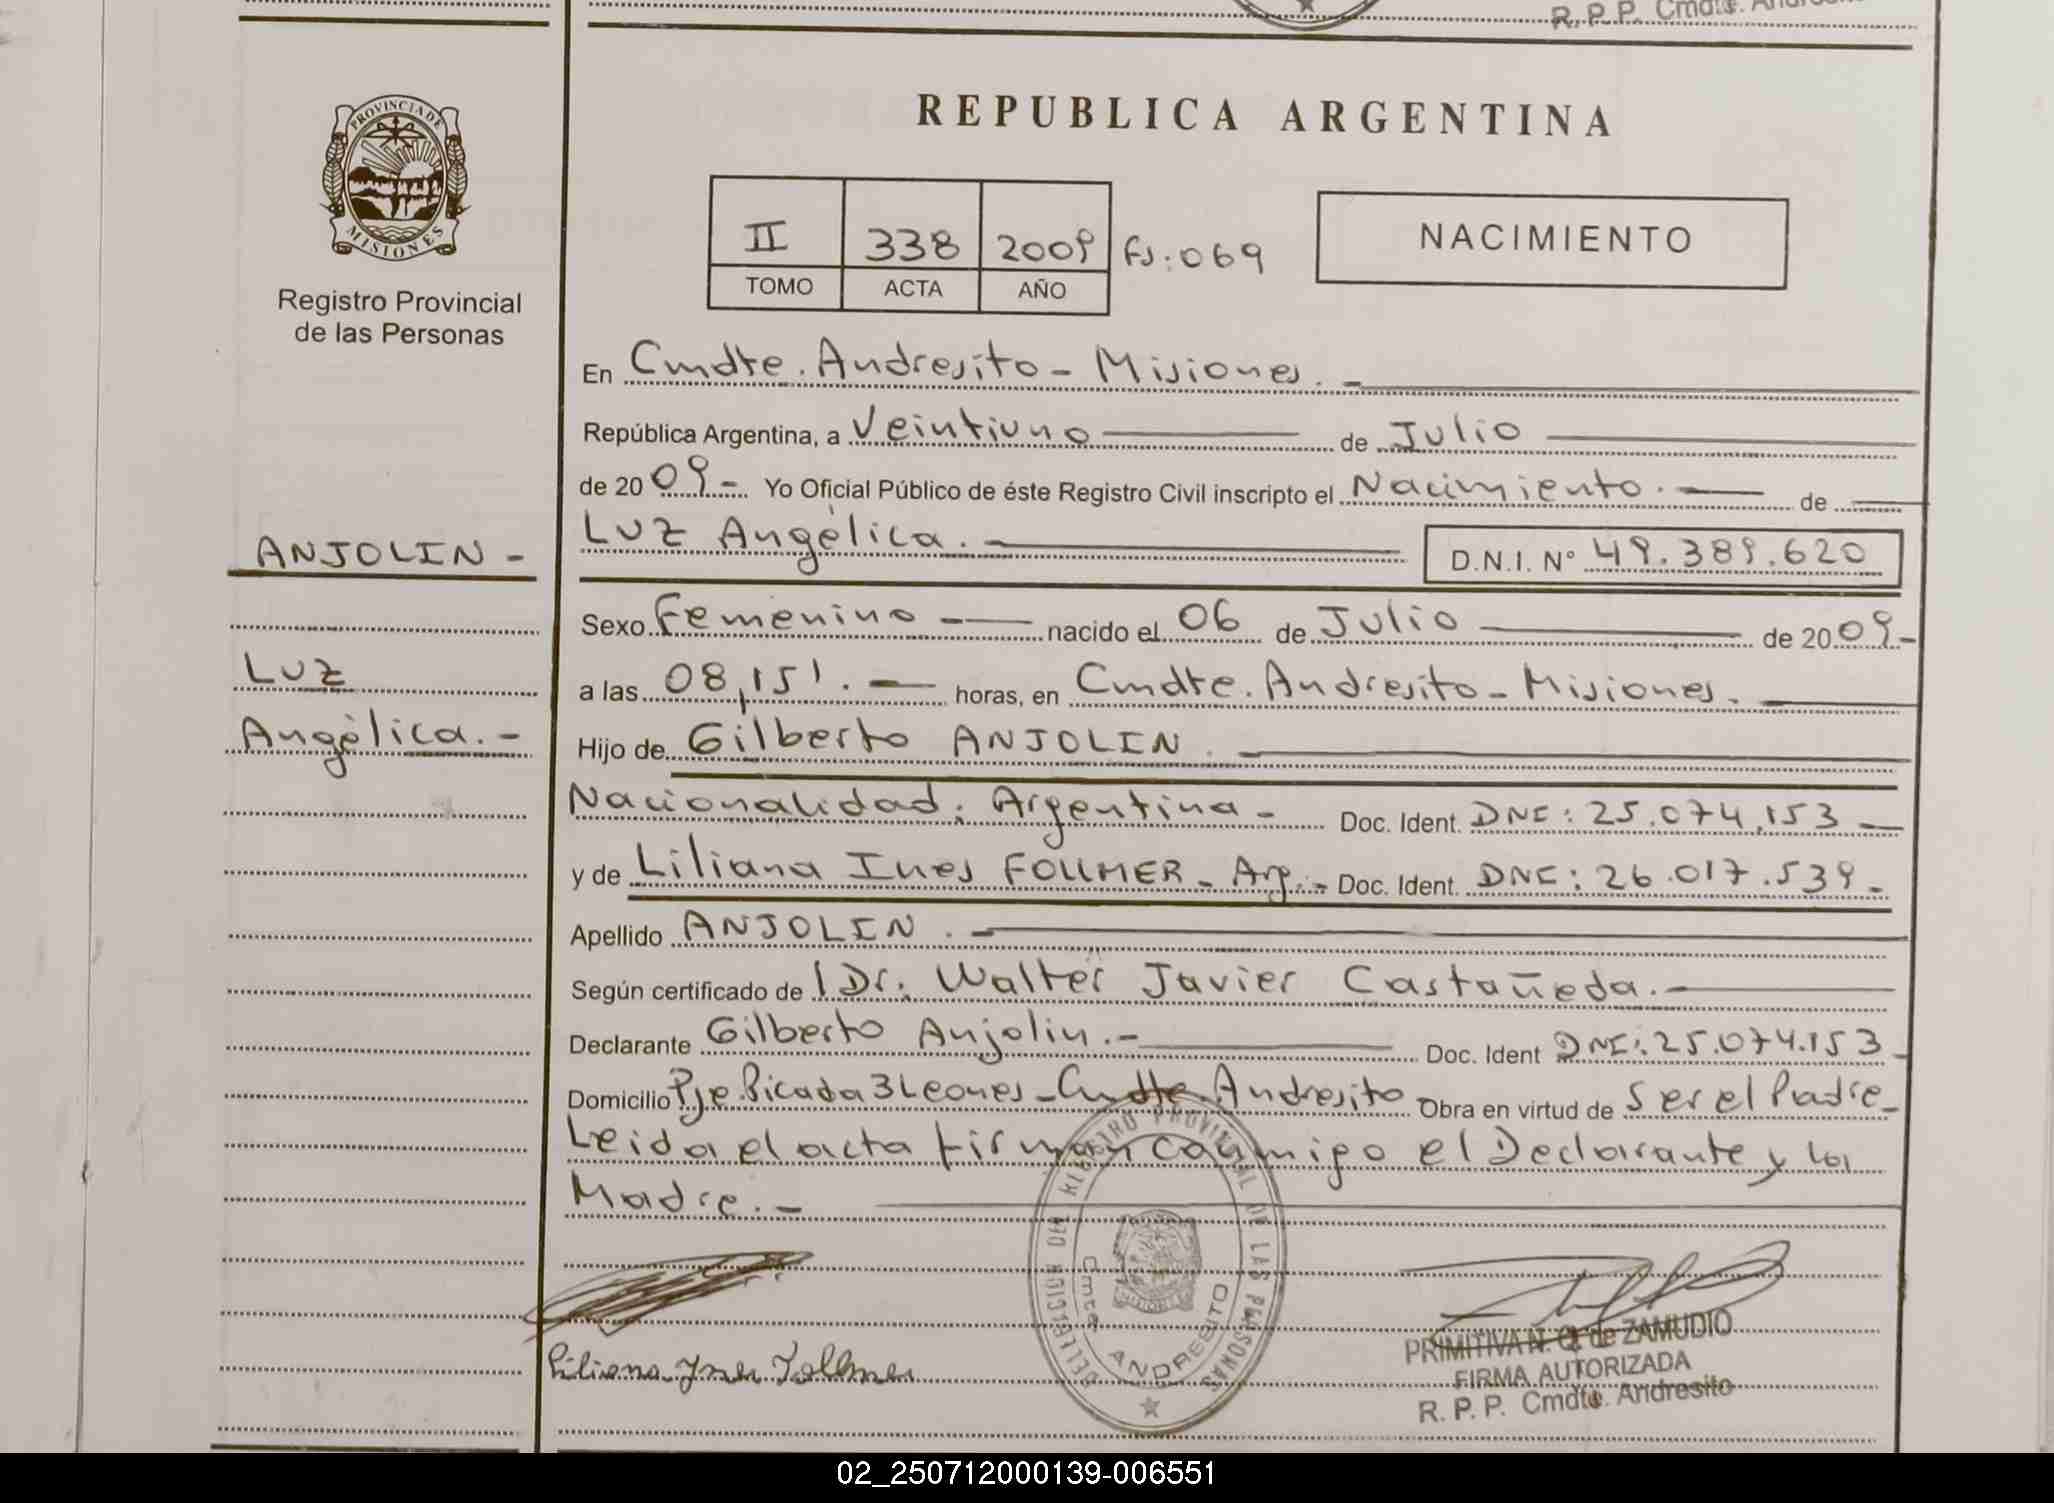 R. P. P. Cmdte.
PROVINCIA DE
MISIONES
Registro Provincial
de las Personas
REPUBLICA ARGENTINA
II 338 2009 fs: 069
TOMO ACTA AÑO
NACIMIENTO
En Cmdte. Andresito - Misiones. -
República Argentina, a Veintiuno de Julio
de 2009 - Yo Oficial Público de éste Registro Civil inscripto el Nacimiento. - de
ANJOLIN -
LUZ Angélica. -
D.N.I. Nº 49.389.620
Sexo Femenino - nacido el 06 de Julio de 2009 -
LUZ
Angélica. -
a las 08,15'. - horas, en Cmdte. Andresito - Misiones. -
Hijo de Gilberto ANJOLIN. -
Nacionalidad: Argentina - Doc. Ident. DNI: 25.074.153 -
y de Liliana Ines FOLLMER - Arg. - Doc. Ident. DNI: 26.017.539 -
Apellido ANJOLIN. -
Según certificado de l Dr. Walter Javier Castañeda. -
Declarante Gilberto Anjolin. - Doc. Ident DNI: 25.074.153 -
Domicilio Pje. Picada 3 Leones - Cmdte. Andresito - Obra en virtud de Ser el Padre -
Leida el acta firman conmigo el Declarante y la
Madre. -
DELEGACION DEL REGISTRO PROVINCIAL DE LAS PERSONAS
Cmte. ANDRESITO
Liliana Ines Follmer
PRIMITIVA N. Q. de ZAMUDIO
FIRMA AUTORIZADA
R. P. P. Cmdte. Andresito
02_250712000139-006551